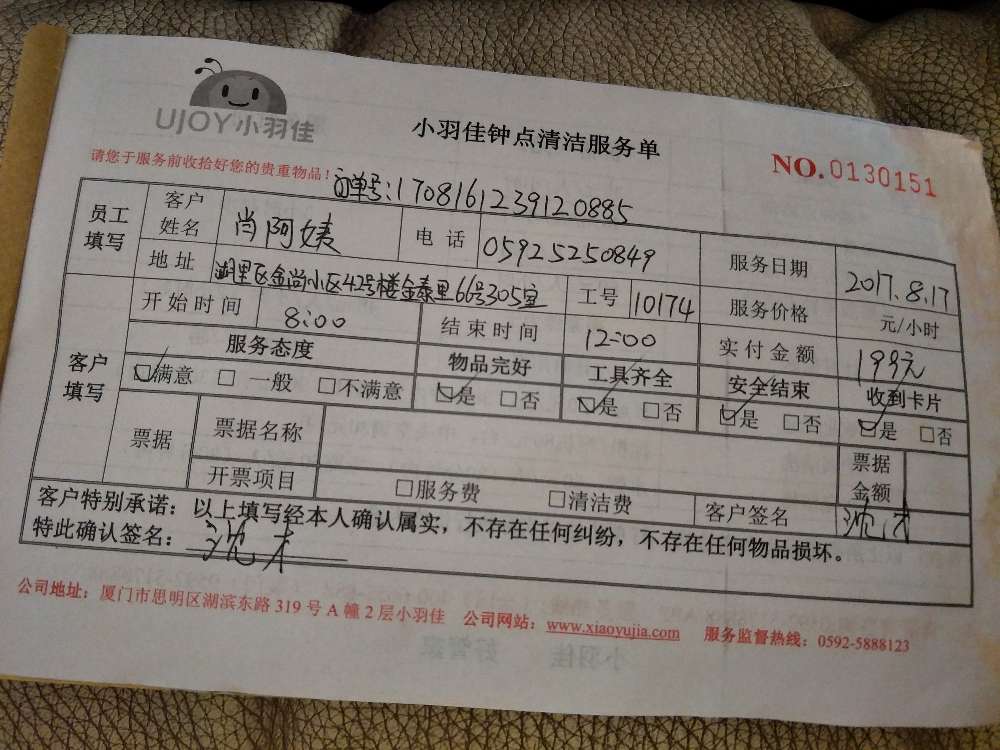 UJOY小羽佳
小羽佳钟点清洁服务单
NO.0130151
请您于服务前收拾好您的贵重物品！
订单号:170816123912 0885
员工填写 客户姓名 肖阿姨 电话 05925250849 服务日期 2017.8.17
地址 湖里区金尚小区42号楼金泰里66号305室 工号 10174 服务价格 元/小时
客户填写 开始时间 8:00 结束时间 12:00 实付金额 199元
服务态度 物品完好 工具齐全 安全结束 收到卡片
☑满意 □一般 □不满意 ☑是 □否 ☑是 □否 ☑是 □否 ☑是 □否
票据 票据名称 票据金额
开票项目 □服务费 □清洁费 客户签名
客户特别承诺：以上填写经本人确认属实，不存在任何纠纷，不存在任何物品损坏。
特此确认签名：
公司地址：厦门市思明区湖滨东路319号A幢2层小羽佳 公司网站：www.xiaoyujia.com 服务监督热线：0592-5888123